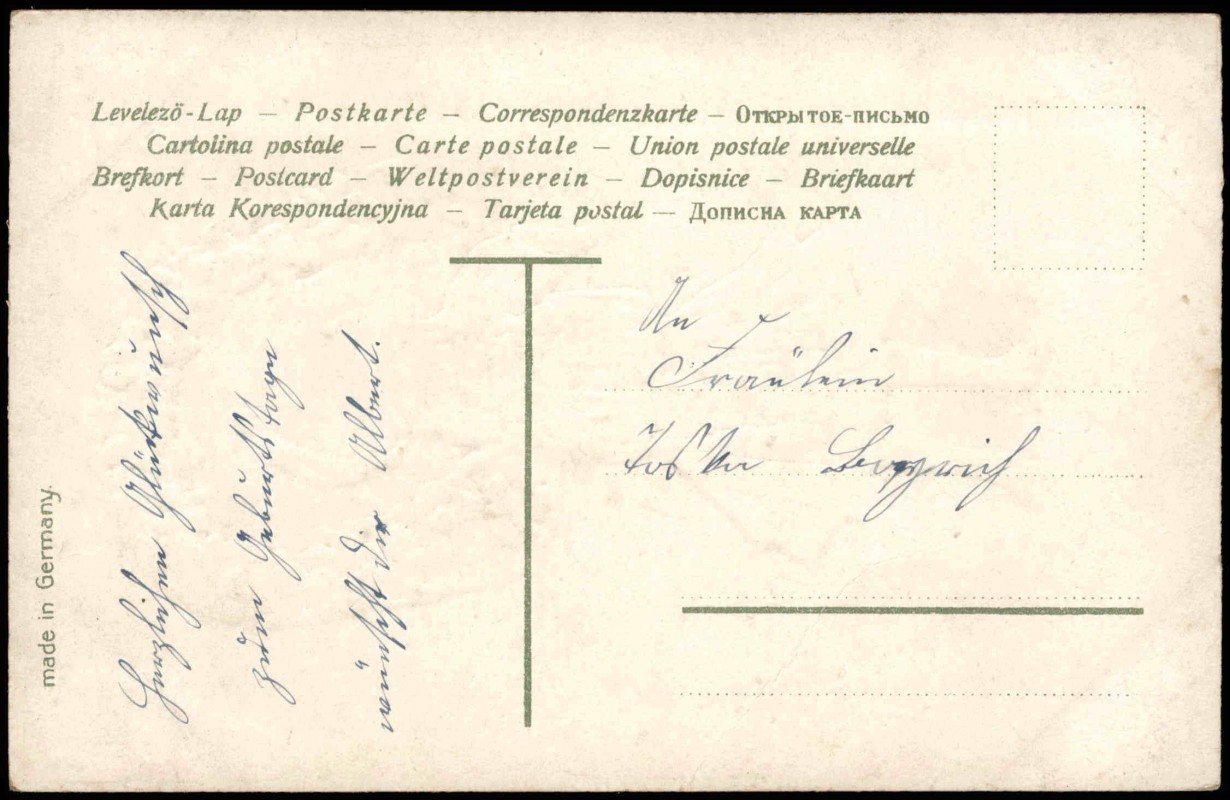 Levelezö-Lap — Postkarte — Correspondenzkarte — Открытое-письмо
Cartolina postale — Carte postale — Union postale universelle
Brefkort — Postcard — Weltpostverein — Dopisnice — Briefkaart
Karta Korespondencyjna — Tarjeta postal — Дописна карта
Herzlichen Glückwunsch
zum Geburtstage
wünscht Dir Albert.
An
Fräulein
Toska
made in Germany.